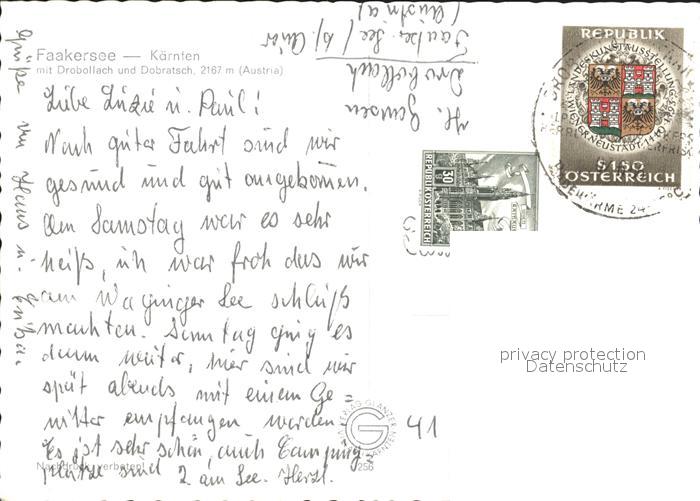 Faakersee — Kärnten
mit Drobollach und Dobratsch, 2167 m (Austria)
Liebe Luzie u. Paul!
Nach guter Fahrt sind wir
gesund und gut angekommen.
Am Samstag war es sehr
heiß, ich war froh das wir
am Waginger See schluß
machten. Sonntag ging es
dann weiter, hier sind wir
spät abends mit einem Ge=
witter empfangen worden.
Es ist sehr schön, auch Camping=
plätze sind 2 am See. Herzl.
Grüße von Hans u.
H. Gensen
Drobollach
Faaker-See /
(Austria)
REPUBLIK
S 1.50
ÖSTERREICH
REPUBLIK ÖSTERREICH
30
VERLAG GLANZER
KÄRNTEN
G
41
256
Nachdruck verboten
privacy protection
Datenschutz